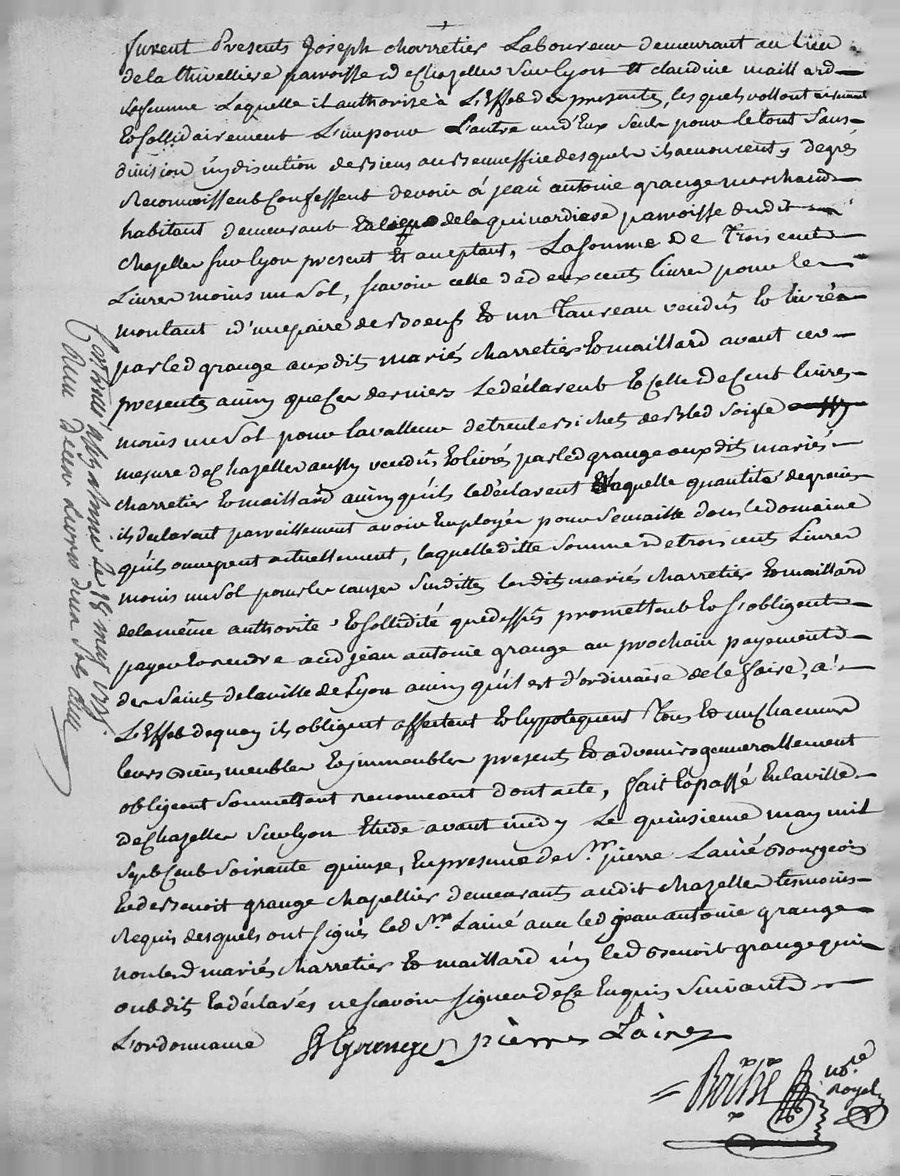 furent Presents Joseph charretier Laboureur demeurant au lieu
de la thivelliere parroisse de Chazelles Sur lyon Et claudine maillard
sa femme Laquelle il authorise à L'Effet des presentes, les quels vollontairement
et sollidairement L'un pour L'autre un d'Eux seul pour le tout Sans
division ny discution de biens au Beneffice desquels ils renoncent, de grés
Reconnoissent Confessent devoir à jean antoine grange marchand
habitant demeurant de la quinardiere parroisse dudit
Chazelles sur lyon present Et acceptant, La somme de Trois cent
Livres moins un sol, scavoir celle de deux cents livres pour le
montant d'une paire de Boeufs et un Taureau vendus et livrés
par led grange aux dits mariés charretier et maillard avant ces
presentes ainsy que ces derniers le déclarent et celle de Cent livres
moins un sol pour la valleur de treule bichets de Bled Soigle
mesure de Chazelles aussy vendus et livrés par led grange aux dits mariés
charretier et maillard ainsy qu'ils le déclarent Laquelle quantité de grains
ils declarent pareillement avoir Employée pour Semaille dans le domaine
qu'ils occupent actuellement, laquelle ditte somme de trois cents Livres
moins un sol pour les causes Susdittes les dits mariés charretier et maillard
de la même authorité et sollidité que dessus promettent et s'obligent
payer et rendre aud jean antoine grange au prochain payement
des Saints de la ville de Lyon ainsy qu'il est d'ordinaire de le faire, à
L'Effet de quoy ils obligent affectent et hypotequent Tous et un chacuns
leurs biens meubles et immeubles present et advenirs generallement
obligeant Soumettant renonceant dont acte, fait et passé En la ville
de Chazelles Sur lyon Etude avant midy Le quinsieme may mil
Sept Cent Soixante quinse, En presence de Sr. pierre Lainé Bourgeois
Et de Benoit grange chapellier demeurants audit Chazelles tesmoins
Requis desquels ont signés led Sr. Lainé avec led jean antoine grange
non lesd mariés charretier et maillard ny led Benoit grange qui
ont dit et déclarés ne scavoir signer de Ce Enquis Suivant
L'ordonnance
Grange pierre Lainé
nore
Royal
Controllé a St Simphorien Le 18 may 1775
Recu deux livres deux sols